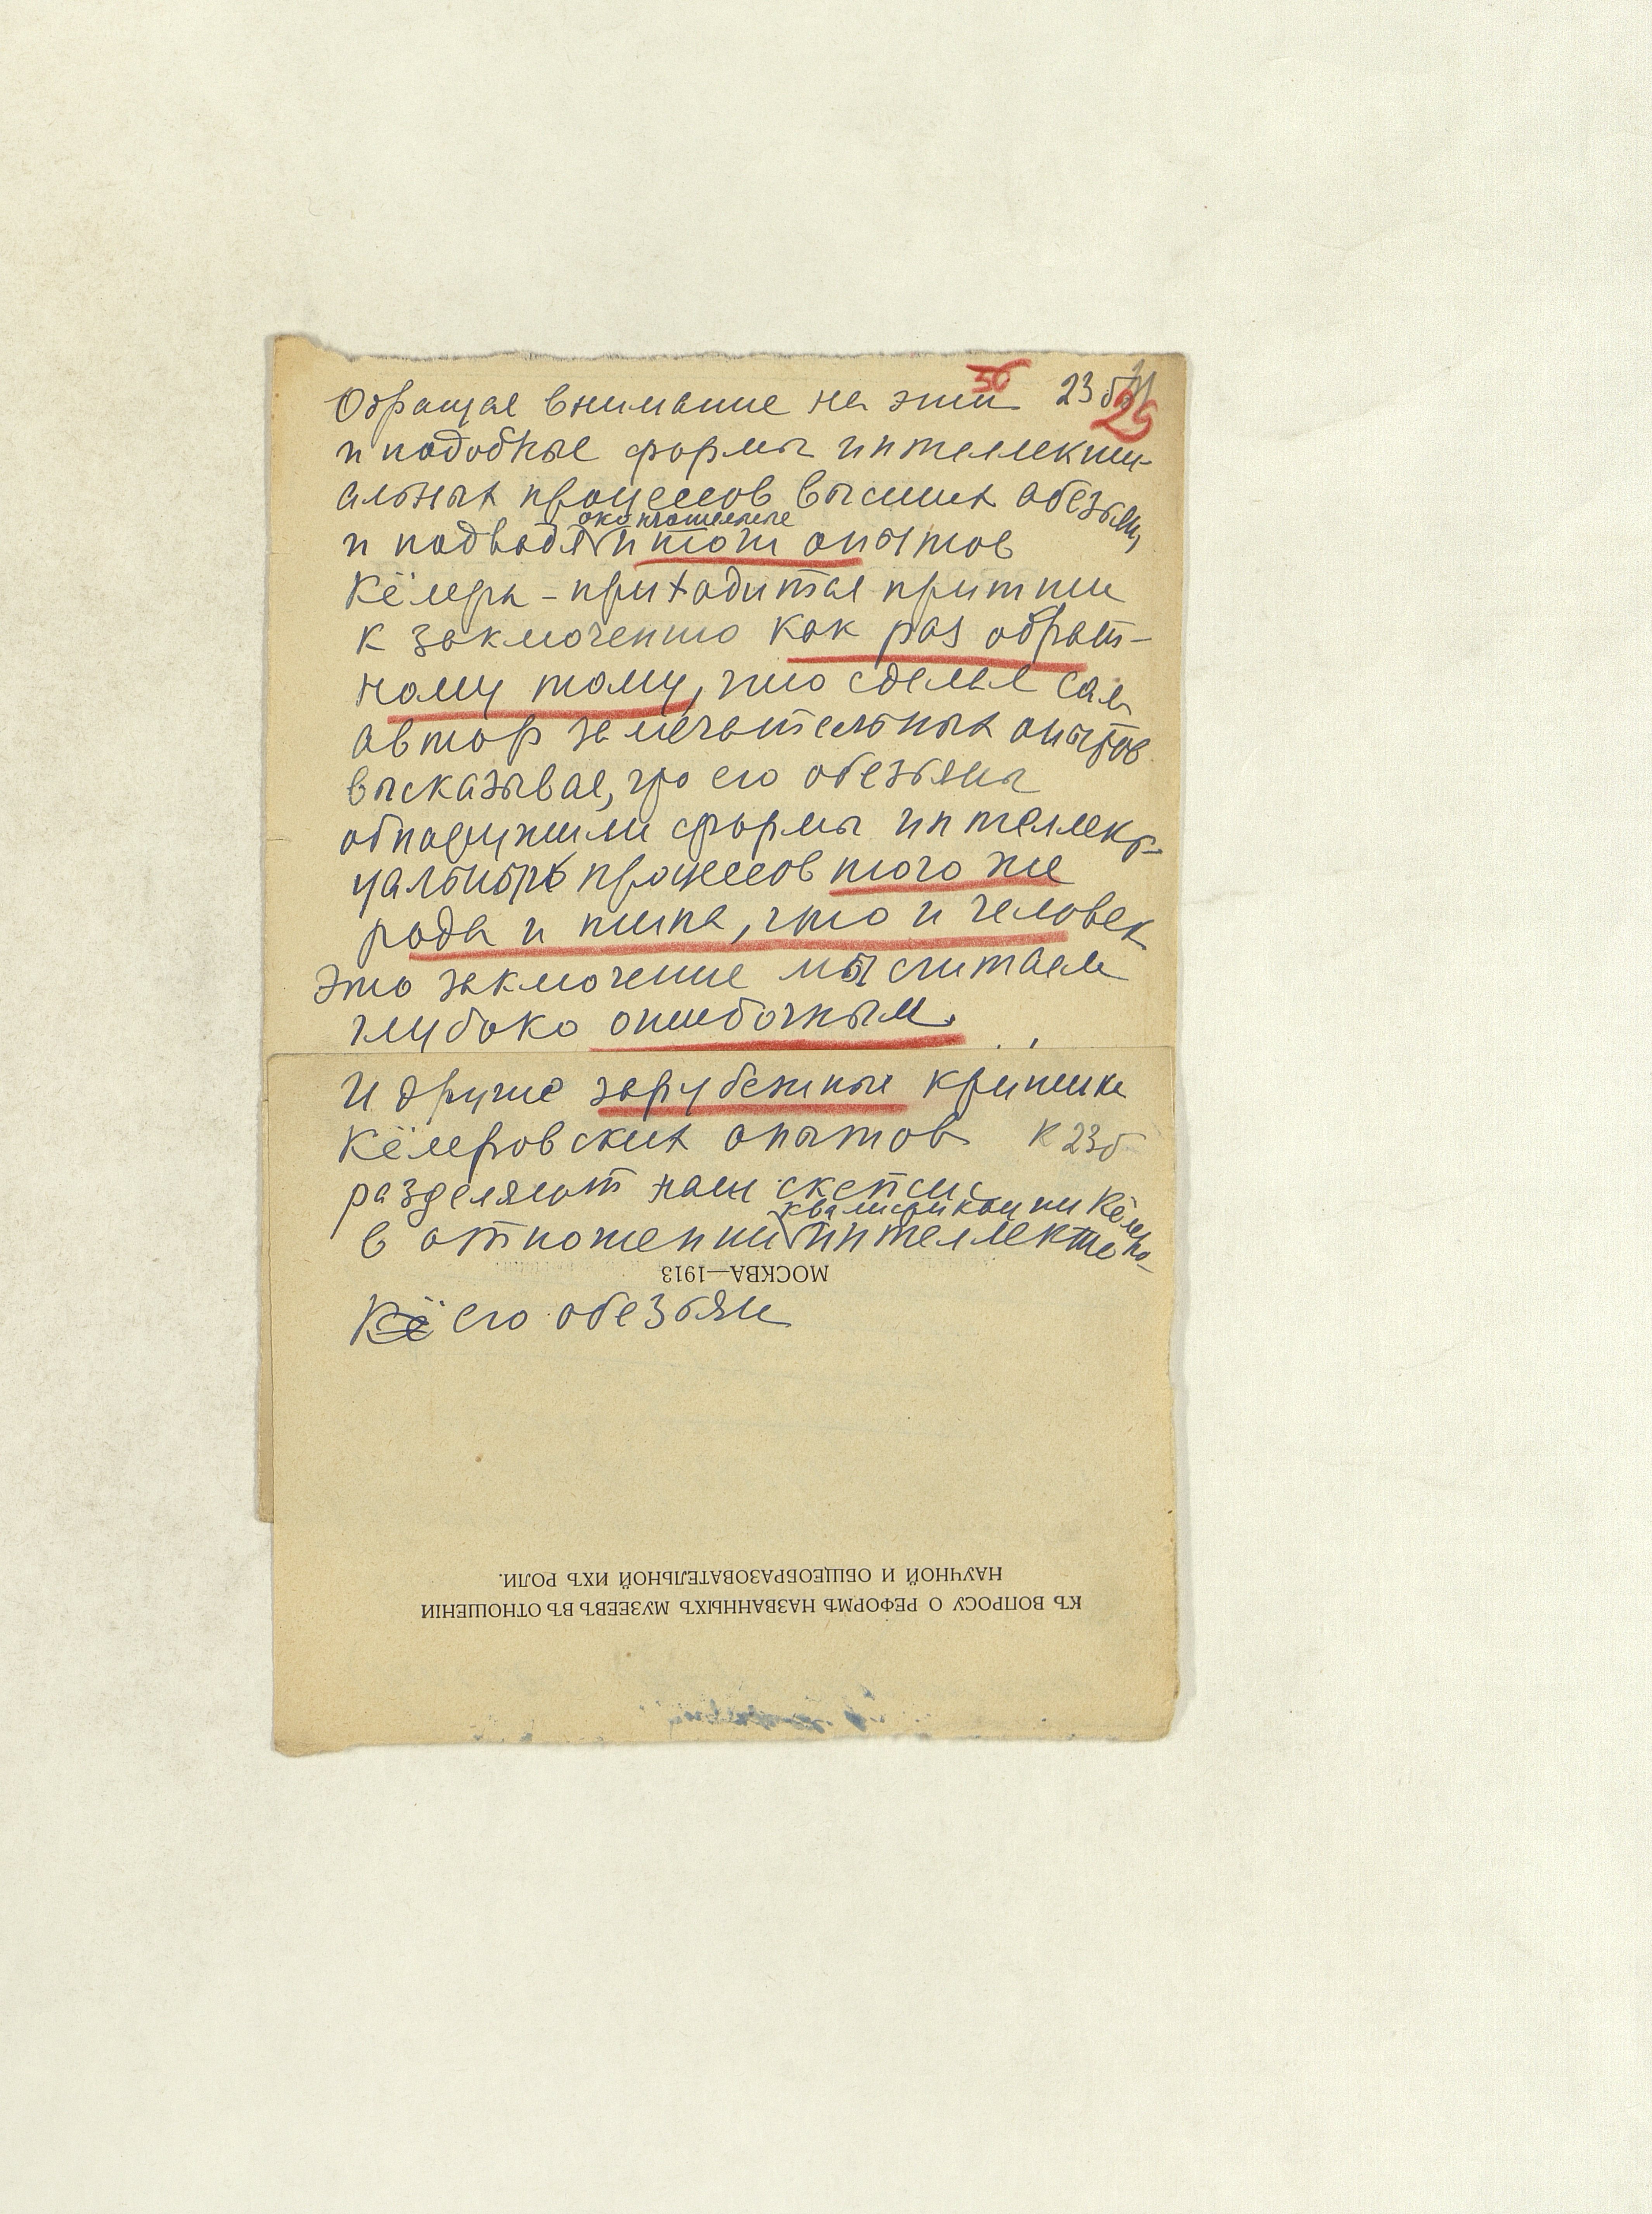 Обращая внимание на эти 36 23б 25
и подобные формы интеллекту-
альных процессов высших обезьян,
окончательные
и подводя итоги опытов
Кёлера - приходится притти
к заключению как раз обрат-
ному тому, что сделал сам
автор замечательных опытов
высказывая, что его обезьяны
обнаружили формы интеллек-
уальных процессов того же
рода и типа, что и человек
Это заключение мы считаем
глубоко ошибочным.
И другие зарубежные критики
Кёлеровских опытов К 23б
разделяют наш скепсис
квалификации Кёлера-
в отношении интеллекта
МОСКВА—1913
Кё его обезьян
КЪ ВОПРОСУ О РЕФОРМѢ НАЗВАННЫХЪ МУЗЕЕВЪ ВЪ ОТНОШЕНІИ
НАУЧНОЙ И ОБЩЕОБРАЗОВАТЕЛЬНОЙ ИХЪ РОЛИ.